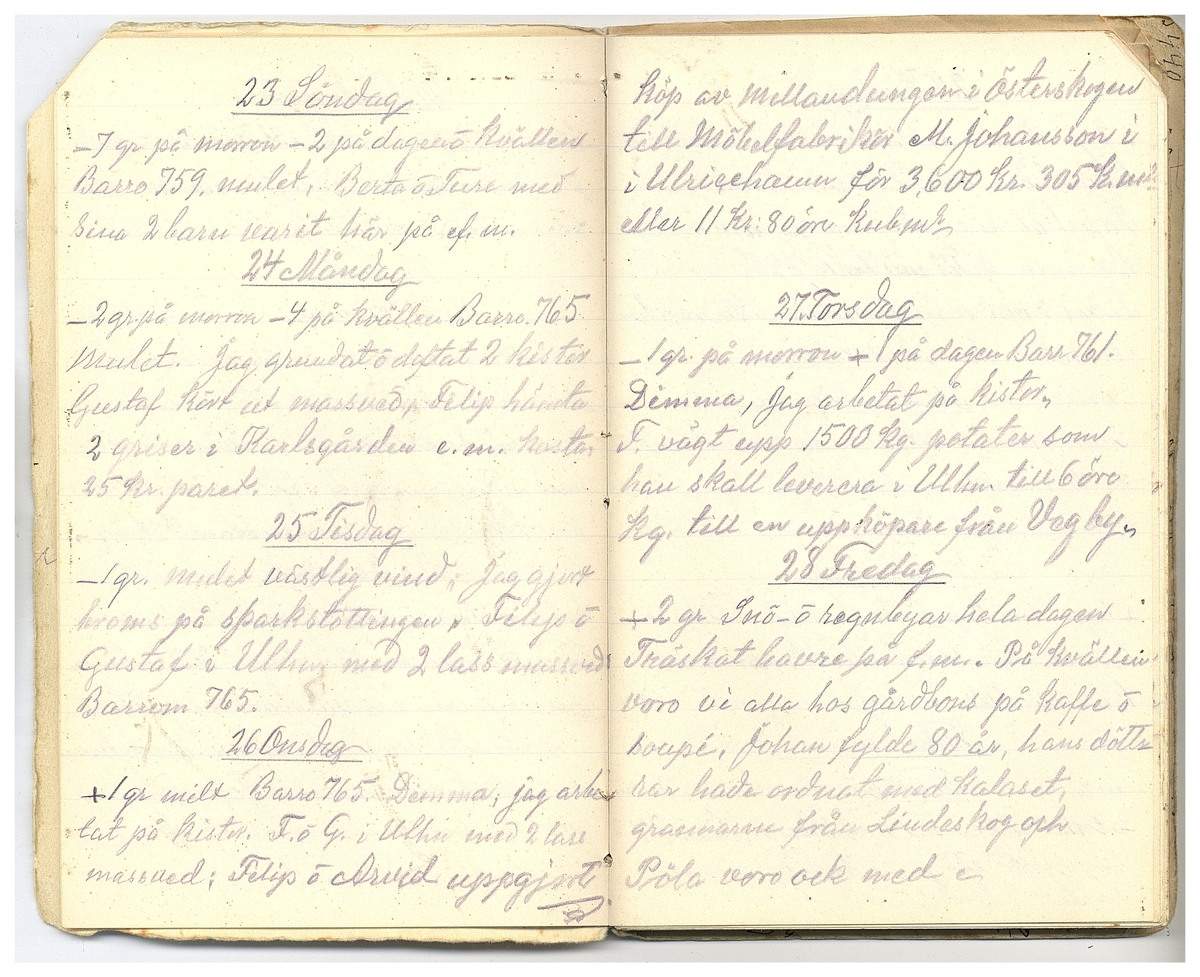 23 Söndag
-7 gr. på morron -2 på dagen ō kvällen
Barro 759. mulet. Berta ō Ture med
sina 2 barn varit här på ef.m.
24 Måndag
-2 gr. på morron -4 på kvällen Barro. 765
mulet. Jag grundat ō 2 kistor
Gustaf kört ut massved, Felip hämta
2 griser i Karlsgården e.m. kostar
25 Kr. paret.
25 Tisdag
-1 gr. mulet västlig vind, Jag gjort
broms på sparkstöttingen, Felip ō
Gustaf i Ulhn med 2 lass massved
Barrom 765.
26 Onsdag
+1 gr milt Barro 765. Dimma, jag arbe
tat på kistor. F. ō G. i Ulhn med 2 lass
massved; Felip ō Arvid uppgjort
köp av i Österskogen
till Möbelfabrikör M. Johansson i
i Ulricehamn för 3,600 Kr. 305 K.m2
eller 11 Kr: 80 öre
27. Torsdag
-1 gr. på morron +1 på dagen Barr 761.
Dimma, jag arbetat på kistor,
F. vägt upp 1500 Kg. potater som
han skall leverera i Ulhn till 6 öre
Kg. till en uppköpare från Vegby,
28 Fredag
+2 gr Snö- ō regnbyar hela dagen
Träskat havre på f.m. På kvällen
voro vi alla hos gårdbons på kaffe ō
soupé, Johan fylde 80 år, hans dött
rar hade ordnat med kalaset,
grannarne från Lindeskog och
Pöla voro ock med
5440